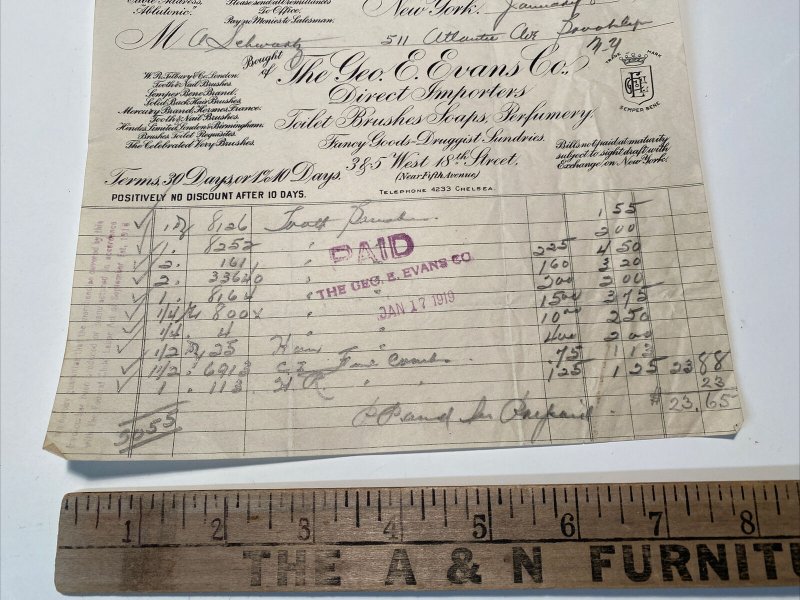 Cable Address,
"Ablutonic."
Please send all remittances
To Office.
Pay no Monies to Salesman.
New York. January
M A Schwartz 511 Atlantic Ave Brooklyn
N.Y
Bought of The Geo. E. Evans Co.,
Direct Importers
Toilet Brushes Soaps, Perfumery,
Fancy Goods-Druggist Sundries.
3 & 5 West 18th Street.
(Near Fifth Avenue)
Telephone 4233 Chelsea.
W.R. Tilbury & Co. London.
Tooth & Nail Brushes.
Semper Bene Brand.
Solid Back Hair Brushes.
Mercury Brand, Hermes, France.
Tooth & Nail Brushes.
Hindes Limited, London & Birmingham.
Brushes, Toilet Requisites.
The Celebrated Very Brushes.
TRADE MARK
SEMPER BENE
Bills not paid at maturity
subject to sight draft with
Exchange on New York.
Terms, 30 Days, or 1% 10 Days.
POSITIVELY NO DISCOUNT AFTER 10 DAYS.
8126 Tooth Brushes 1 55
1. 8252 " 2 00
2. 161 " 225 4 50
2. 33640 " 160 3 20
1. 816 200 2 00
1/4 800x " 1500 3 75
1/4 4 " 1000 2 50
1/2 25 400 2 00
1 1/2 " 6913 Fine Combs 75 1 12
1 " 112 " " 125 1 25 23 88
23
23.65
PAID
THE GEO. E. EVANS CO.
JAN 17 1919
5055
1 2 3 4 5 6 7 8
THE A & N FURNITU